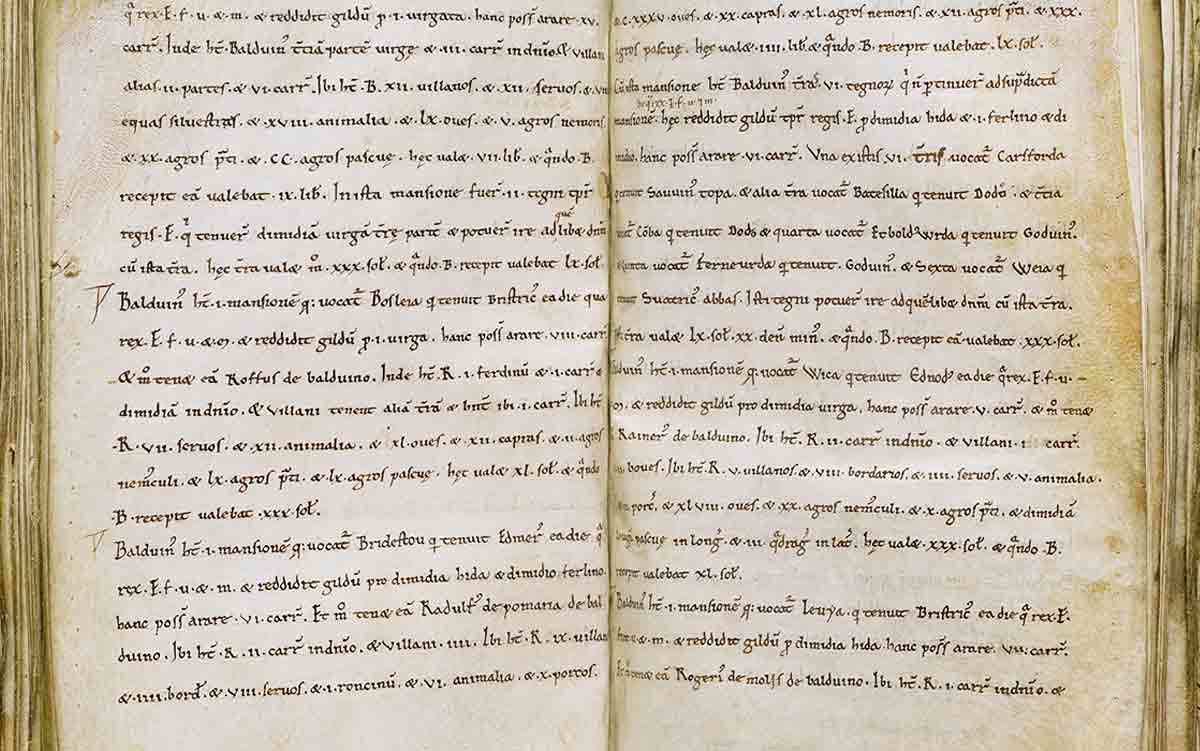 q̄ rex. E. f. u. & .m. & reddidit gildū p̄ .i. uirgata. hanc poss̄ arare xv.
carr̄. Inde ht̄. Balduin᷒ t̄ciā partē uirgę & .iii. carr̄ in dn̄io & uillani
alias .ii. partes & .vi. carr̄. Ibi ht̄. B. xii. uillanos. & .xii. seruos. & .vii
equas siluestras. & .xviii. animalia. & .lx. oues. & .v. agros nemoris
& .xx. agros p̄ti. & .CC. agros pascuę. hęc ualæ .vii. lib̄. & q̄ndo .B.
recepit eā ualebat .ix. lib̄. In ista mansione fuer̄ .ii. tegni tp̄r
regis .E. q̄ tenuer̄ dimidiā uirgā tr̄ę parit̄ & potuer̄ ire ad quē libæ dn̄m
cū ista tr̄a. hęc tr̄a ualæ m̊ .xxx. sol̄. & q̄ndo .B. recepit ualebat lx. sol̄.
Balduin᷒ ht̄ .i. mansionē q; uocat̄ Bosleia q tenuit Bristric᷒ ea die qua
rex. E. f. u. & .m. & reddidit gildū p̄ .i. uirga. hanc poss̄ arare. viii. carr̄
& m̊ tenæ eā Roffus de balduino. Inde ht̄. R. i. ferdinū & .i. carr̄ &
dimidiā in dn̄io. & uillani tenent aliā tr̄ā & hn̄t ibi .i. carr̄. Ibi ht̄
.R. vii. seruos. & .xii. animalia. & xl. oues. & .xii. capras. & .ii. agros
nem̄culi. & lx. agros p̄ti. & lx. agros pascuę. hęc ualæ xl. sol̄. & q̄ndo
.B. recepit ualebat .xxx. sol̄.
Balduin᷒ ht̄ .i. mansionē q; uocat̄ Bridestou q tenuit Edmer᷒ ea die q̄
rex. E. f. u. & .m. & reddidit gildū pro dimidia hida & dimidio ferlino.
hanc poss̄ arare. vi. carr̄. Et m̊ tenæ eā Radulf᷒ de pomaria de bal
duino. Ibi ht̄. R. ii. carr̄ in dn̄io. & uillani .iiii. Ibi ht̄. R. ix. uillan
& .iiii. bord̄. & viii. seruos. & .i. roncinū. & vi. animalia. & x. porcos.
& .C. xxxv. oues. & xx. capras. & xl. agros nemoris. & xii. agros p̄ti. & xxx.
agros pascuę. hęc ualæ .iiii. lib̄. & q̄ndo .B. recepit ualebat. lx. sol̄.
Cū ista mansione ht̄ Balduin᷒ tr̄as .vi. tegnoꝝ q̄ n̄ ptinuer̄ ad sup̄dictā
mansionē. hęc reddidit gildū tp̄r regis. E. p̄ dimidia hida & .i. ferlino & di
midio. hanc poss̄ arare .vi. carr̄. Una ex istis .vi. tr̄is uocat̄ Carsforda
tenuit Sauuin᷒ topa. & alia tr̄a uocat̄ Batesilla q tenuit Dodo. & t̄cia
uocat̄ Cōba q tenuit Dodo & quarta uocat̄ Etboldus Wrda q tenuit Goduin᷒.
quinta uocat̄ Ferneurda q tenuit. Goduin᷒. & Sexta uocat̄ Weia q
tenuit Suatric᷒ abbas. Isti tegni potuer̄ ire ad quēlibæ dn̄m cū ista tr̄a.
tr̄a ualæ lx. sol̄. xx. den̄ min᷒. & q̄ndo. B. recepit eā ualebat .xxx. sol̄.
Balduin᷒ ht̄ .i. mansionē q; uocat̄ Wica q tenuit Ednod᷒ ea die q̄ rex. E. f. u.
m. & reddidit gildū pro dimidia uirga. hanc poss̄ arare. v. carr̄. & m̊ tenæ
Rainer᷒ de balduino. Ibi ht̄. R. ii carr̄ in dn̄io & uillani .i carr̄
boues. Ibi ht̄. R. v. uillanos. & viii. bordarios. & .iiii. seruos. & v. animalia.
porc̄. & xlviii. oues. & xx. agros nem̄culi. & x. agros p̄ti. & dimidiā
pascuę in lonḡ. & .iii. q̄draḡ in lat̄. hęc ualæ. xxx. sol̄. & q̄ndo .B.
recepit ualebat xl. sol̄.
Balduin᷒ ht̄ .i. mansionē q; uocat̄ Leuya. q tenuit Bristric᷒ ea die q̄ rex. E.
& m. & reddidit gildū p̄ dimidia hida. hanc poss̄ arare. vii. carr̄.
tenæ eā Rogeri᷒ de molis de balduino. Ibi ht̄. R. i. carr̄ in dn̄io. &